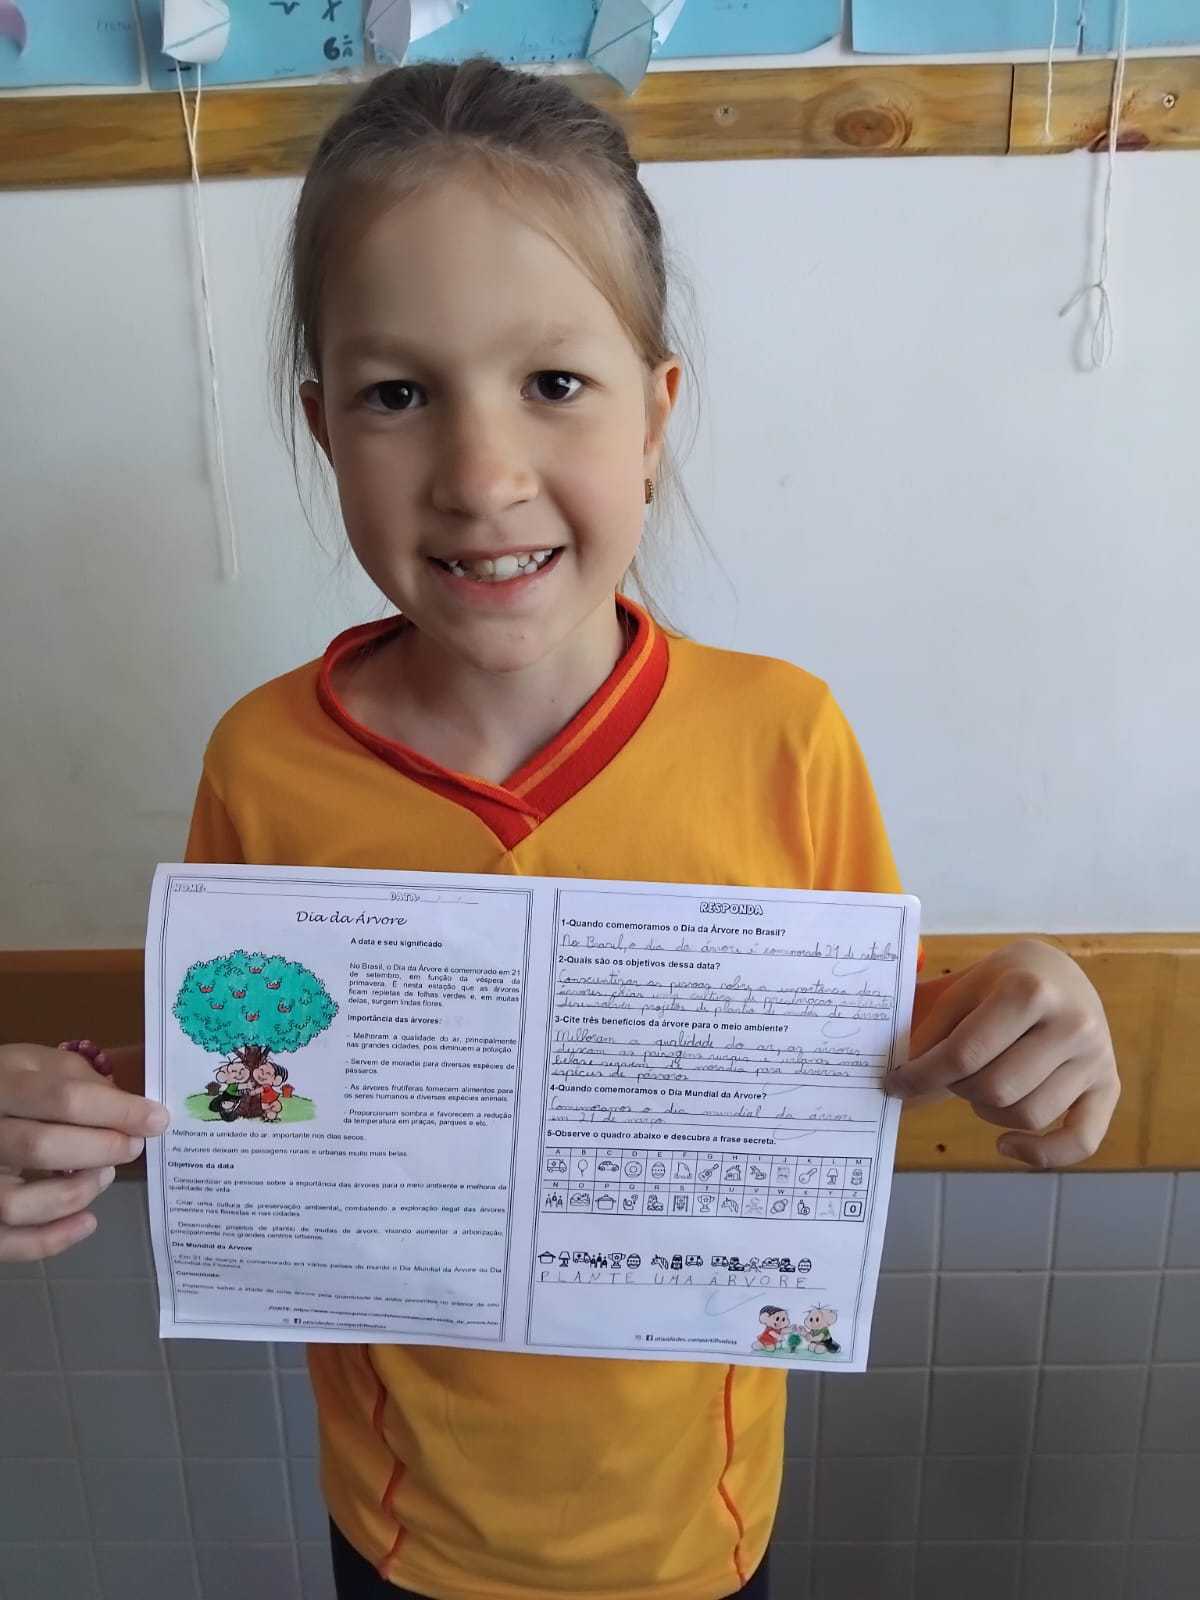 NOME:
DATA: / /
Dia da Árvore
A data e seu significado
No Brasil, o Dia da Árvore é comemorado em 21
de setembro, em função da véspera da
primavera. É nesta estação que as árvores
ficam repletas de folhas verdes e, em muitas
delas, surgem lindas flores.
Importância das árvores:
- Melhoram a qualidade do ar, principalmente
nas grandes cidades, pois diminuem a poluição.
- Servem de moradia para diversas espécies de
pássaros.
- As árvores frutíferas fornecem alimentos para
os seres humanos e diversas espécies animais.
- Proporcionam sombra e favorecem a redução
da temperatura em praças, parques e etc.
Melhoram a umidade do ar, importante nos dias secos.
- As árvores deixam as paisagens rurais e urbanas muito mais belas.
Objetivos da data
Conscientizar as pessoas sobre a importância das árvores para o meio ambiente e melhoria da
qualidade de vida.
- Criar uma cultura de preservação ambiental, combatendo a exploração ilegal das árvores
presentes nas florestas e nas cidades.
- Desenvolver projetos de plantio de mudas de árvore, visando aumentar a arborização,
principalmente nos grandes centros urbanos.
Dia Mundial da Árvore
- Em 21 de março é comemorado em vários países do mundo o Dia Mundial da Árvore ou Dia
Mundial da Floresta.
Curiosidade:
- Podemos saber a idade de uma árvore pela quantidade de anéis presentes no interior de seu
tronco.
FONTE:
atividades.compartilhadas
RESPONDA
1-Quando comemoramos o Dia da Árvore no Brasil?
No Brasil, o dia da árvore é comemorado 21 de setembro
2-Quais são os objetivos dessa data?
Conscientizar as pessoas sobre a importância das
árvores criar uma cultura de preservação ambiental
desenvolver projetos de plantio de mudas de árvore
3-Cite três benefícios da árvore para o meio ambiente?
Melhoram a qualidade do ar, as árvores
deixam as paisagens rurais e urbanas mais
belas e servem de moradia para diversas
espécies de pássaros
4-Quando comemoramos o Dia Mundial da Árvore?
Comemoramos o dia mundial da árvore
em 21 de março
5-Observe o quadro abaixo e descubra a frase secreta.
A B C D E F G H I J K L M
N O P Q R S T U V W X Y Z
PLANTE UMA ARVORE
atividades.compartilhadas